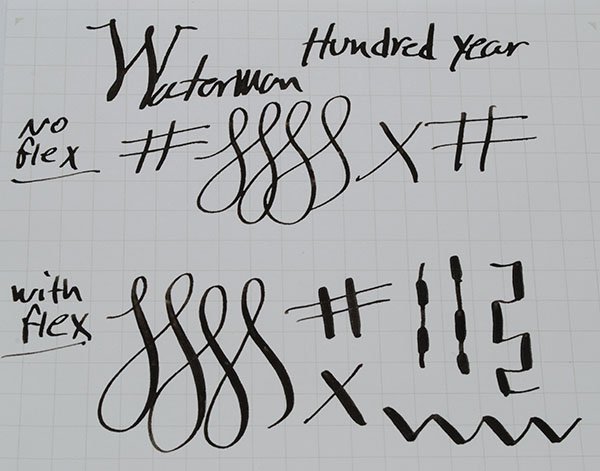 Waterman Hundred Year
No flex # X #
with flex # X